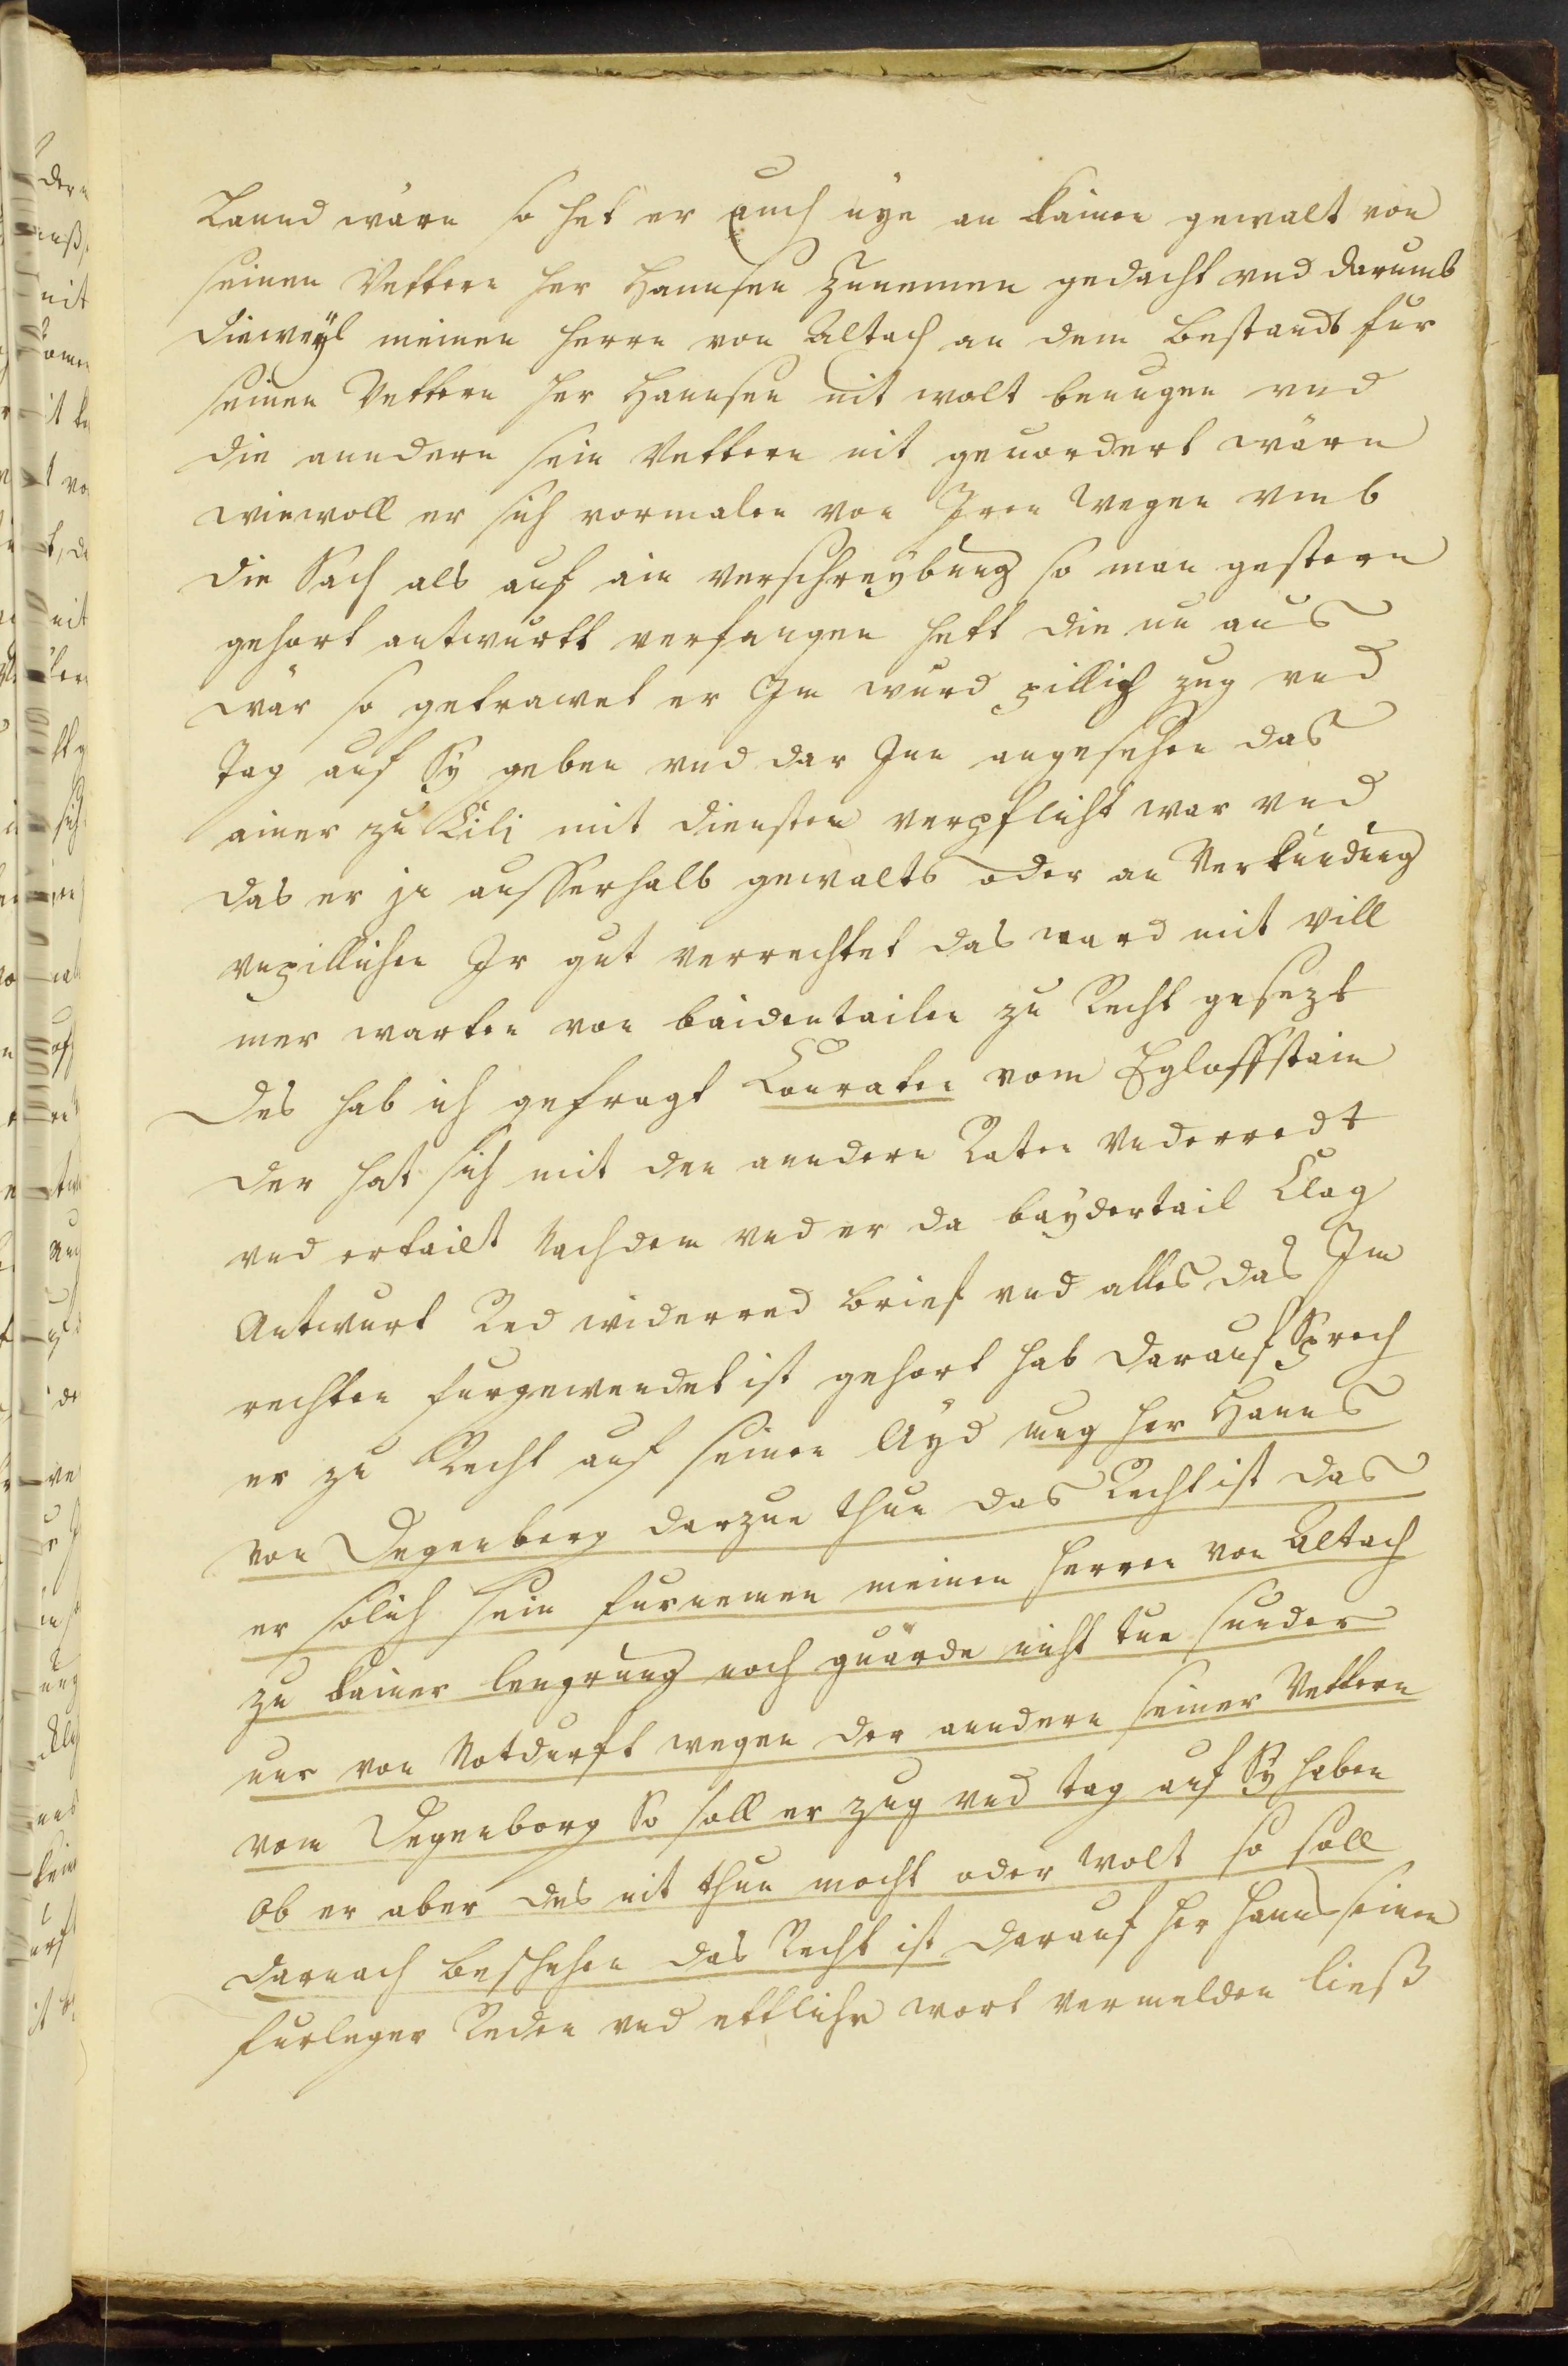 Lannd wärn so het er auch nye an kainen gewalt von
seinen Vettern her Hannsen Zunemen gedacht vnd darumb
dieweyl meinen herrn von Altach an dem bestandt fur
seinen Vettern her Hannsen nit wolt benugen vnd
die anndern sein Vettern nit geuordert wärn
wiewoll er sich vormalen von Iren wegen vmb
die Sach als auf ain verschreybung so man gestern
gehort antwurtt verfangen hett die nu aus
wär so getrawet er Im wurd pillich zug vnd
tag auf Sy geben vnd dar Inn angesehen das
ainer zu Cili mit diensten verpflicht war vnd
das er je ausserhalb gewalts oder an Verkündung
vnpillichen Ir gut verrechtet das ward mit vill
mer warten von baidentailen zu Recht gesezt
Des hab ich gefragt Conraten vom Egloffstain
der hat sich mit den anndern Raten Vnderredt
vnd ertailt Nachdem vnd er da baydertail Clag
Antwurt Red widerred brief vnd alles das Im
rechten furgewendet ist gehort hab darauf Sprech
er zu Recht auf seinen Ayd mug her Hanns
von Degenberg darzue thun das Recht ist das
er solich sein furnemen meinen herren von Altach
zu kainer lengrung noch guärde nicht tue sunder
nur von Notdurft wegen der anndern seiner Vettern
vom Degenberg So soll er zug vnd tag auf Sy haben
Ob er aber des nit thun mocht oder wolt so soll
darnach beschehen das Recht ist darauf her Hanns seinen
furleger Reden vnd ettliche wort vermelden ließ